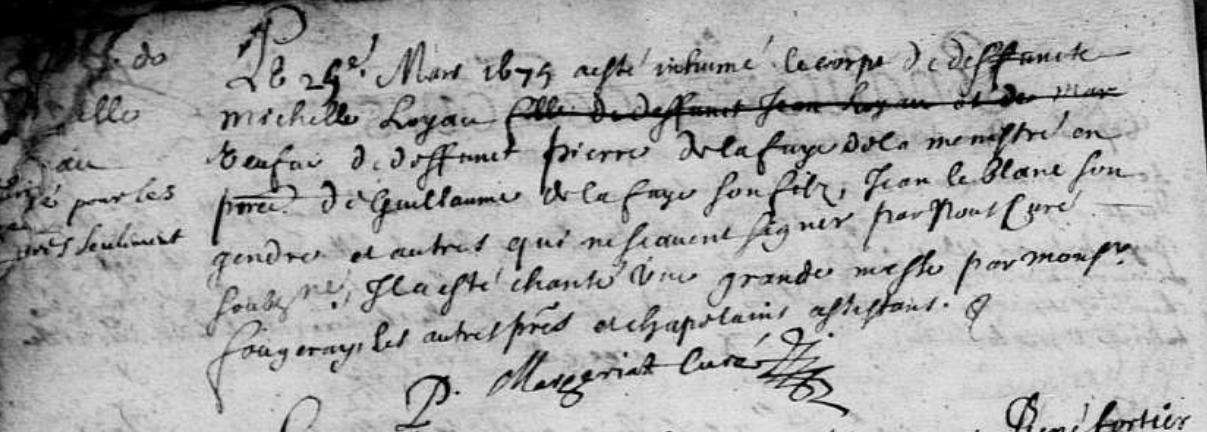 do
Le 25e. Mars 1675 a esté inhumé le corps de deffuncte
elle
michelle Loyau fille de deffunct Jean Loyau et de Mar
au
veufue de deffunct pierre de la faye de la menistré en
pour les
prēce de Guillaume de la faye son filz, Jean le blanc son
prēs seulement
gendre et autres qui ne scauent signer par nous Curé
soubzné, Il a esté chanté vne grande messe par monsr.
fougeray, les autres prēs et chapelains assistans.
P. Margariat Curé
René fortier